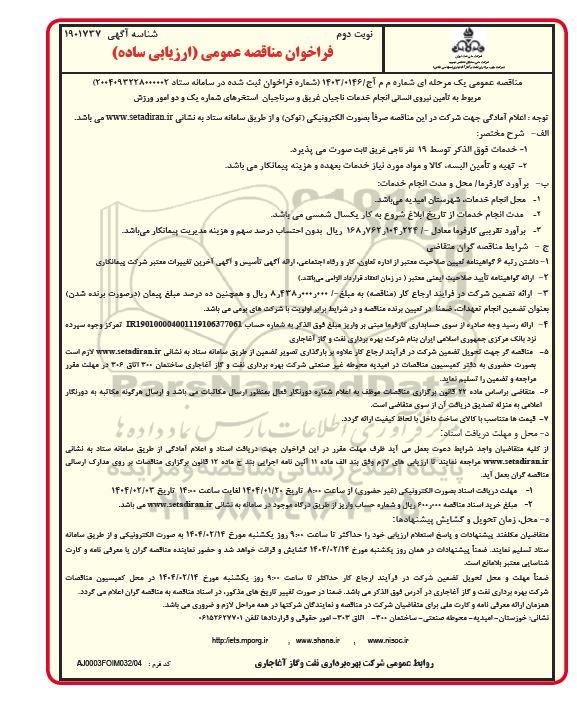 نوبت دوم
شناسه آگهی ۱۹۰۱۷۳۷
فراخوان مناقصه عمومی (ارزیابی ساده)
مناقصه عمومی یک مرحله ای شماره م م آج/۱۴۰۳/۰۱۴۶ (شماره فراخوان ثبت شده در سامانه ستاد ۲۰۰۴۰۹۳۲۲۸۰۰۰۰۰۲)
مربوط به تأمین نیروی انسانی انجام خدمات ناجیان غریق و سرناجیان استخرهای شماره یک و دو امور ورزش
توجه : اعلام آمادگی جهت شرکت در این مناقصه صرفاً بصورت الکترونیکی (توکن) و از طریق سامانه ستاد به نشانی www.setadiran.ir می باشد.
الف- شرح مختصر:
۱- خدمات فوق الذکر توسط ۱۹ نفر ناجی غریق ثابت صورت می پذیرد.
۲- تهیه و تأمین البسه، کالا و مواد مورد نیاز خدمات بعهده و هزینه پیمانکار می باشد.
ب- برآورد کارفرما/ محل و مدت انجام خدمات:
۱- محل انجام خدمات، شهرستان امیدیه می‌باشد.
۲- مدت انجام خدمات از تاریخ ابلاغ شروع به کار یکسال شمسی می باشد.
۳- برآورد تقریبی کارفرما معادل -/۱۶۸ر۷۶۲ر۱۰۴ر۲۲۴ ریال بدون احتساب درصد سهم و هزینه مدیریت پیمانکار می‌باشد.
ج - شرایط مناقصه گران متقاضی
۱- داشتن رتبه ۶ گواهینامه تعیین صلاحیت معتبر از اداره تعاون، کار و رفاه اجتماعی، ارائه آگهی تأسیس و آگهی آخرین تغییرات معتبر شرکت پیمانکاری
۲- ارائه گواهینامه تأیید صلاحیت ایمنی معتبر ( در زمان انعقاد قرارداد الزامی می‌باشد.)
۳- ارائه تضمین شرکت در فرآیند ارجاع کار (مناقصه) به مبلغ -/۸ر۴۳۸ر۰۰۰ر۰۰۰ ریال و همچنین ده درصد مبلغ پیمان (درصورت برنده شدن)
بعنوان تضمین انجام تعهدات. ضمناً در تعیین برنده مناقصه و در شرایط برابر اولویت با شرکت های بومی می باشد.
۴- ارائه رسید وجه صادره از سوی حسابداری کارفرما مبنی بر واریز مبلغ فوق الذکر به شماره حساب IR190100004001119106377061 تمرکز وجوه سپرده
نزد بانک مرکزی جمهوری اسلامی ایران بنام شرکت بهره برداری نفت و گاز آغاجاری
۵- مناقصه گر جهت تحویل تضمین شرکت در فرآیند ارجاع کار علاوه بر بارگذاری تصویر تضمین از طریق سامانه ستاد به نشانی www.setadiran.ir لازم است
بصورت حضوری به دفتر کمیسیون مناقصات در امیدیه محوطه غیر صنعتی شرکت بهره برداری نفت و گاز آغاجاری ساختمان ۳۰۰ اتاق ۳۰۶ در مهلت مقرر
مراجعه و تضمین را تسلیم نماید.
۶- متقاضی براساس ماده ۲۲ قانون برگزاری مناقصات موظف به اعلام شماره دورنگار فعال بمنظور ارسال مکاتبات می باشد و ارسال هرگونه مکاتبه به دورنگار
اعلامی به منزله تصدیق دریافت آن از سوی متقاضی است.
۷- قیمت ها متناسب با کالای ساخت داخل با لحاظ کیفیت ارائه گردد.
د- محل و مهلت دریافت اسناد:
از کلیه متقاضیان واجد شرایط دعوت بعمل می آید ظرف مهلت مقرر در این فراخوان جهت دریافت اسناد و اعلام آمادگی از طریق سامانه ستاد به نشانی
www.setadiran.ir مراجعه نمایند تا ارزیابی های لازم وفق بند الف ماده ۱۱ آئین نامه اجرایی بند ج ماده ۱۲ قانون برگزاری مناقصات بر روی مدارک ارسالی
مناقصه گران بعمل آید.
۱- مهلت دریافت اسناد بصورت الکترونیکی (غیر حضوری) از ساعت ۸:۰۰ تاریخ ۱۴۰۴/۰۱/۲۰ لغایت ساعت ۱۴:۰۰ تاریخ ۱۴۰۴/۰۲/۰۳
۲- مبلغ خرید اسناد مناقصه ۶۰۰٫۰۰۰ ریال و شماره حساب واریز از طریق درگاه موجود در سامانه به نشانی www.setadiran.ir می باشد.
ه- محل، زمان تحویل و گشایش پیشنهادها:
متقاضیان مکلفند پیشنهادات و پاسخ استعلام ارزیابی خود را حداکثر تا ساعت ۹:۰۰ روز یکشنبه مورخ ۱۴۰۴/۰۲/۱۴ به صورت الکترونیکی و از طریق سامانه
ستاد تسلیم نمایند. ضمناً پیشنهادات در همان روز یکشنبه مورخ ۱۴۰۴/۰۲/۱۴ گشایش و قرائت خواهد شد و حضور نماینده مناقصه گران با معرفی نامه و کارت
شناسایی معتبر بلامانع است.
ضمناً مهلت و محل تحویل تضمین شرکت در فرآیند ارجاع کار حداکثر تا ساعت ۹:۰۰ روز یکشنبه مورخ ۱۴۰۴/۰۲/۱۴ در محل کمیسیون مناقصات
شرکت بهره برداری نفت و گاز آغاجاری در آدرس فوق الذکر می باشد. ضمناً در صورت تغییر تاریخ های مذکور، در اسناد مناقصه به مناقصه گران اعلام می گردد.
همزمان ارائه معرفی نامه و کارت ملی برای متقاضیان شرکت در مناقصه و نمایندگان شرکتها در همه مراحل لازم و ضروری می باشد.
نشانی: خوزستان- امیدیه- محوطه صنعتی- ساختمان ۳۰۰- اتاق ۳۰۳- امور حقوقی و قراردادها تلفن ۰۶۱۵۲۶۲۷۷۰۱
http://iets.mporg.ir , www.shana.ir , www.nisoc.ir
روابط عمومی شرکت بهره‌برداری نفت و گاز آغاجاری
کد فرم : AJ0003FOIM032/04